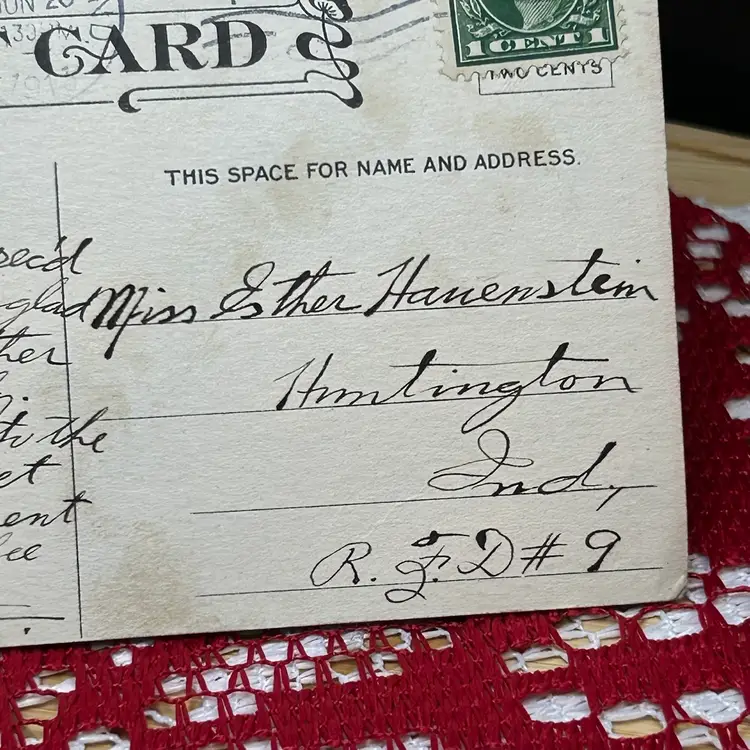 JUN 20
CARD
1 CENT 1
TWO CENTS
THIS SPACE FOR NAME AND ADDRESS.
rec'd
glad
her
to the
et
ent
Miss Esther Hauenstein
Huntington
Ind,
R. F. D # 9